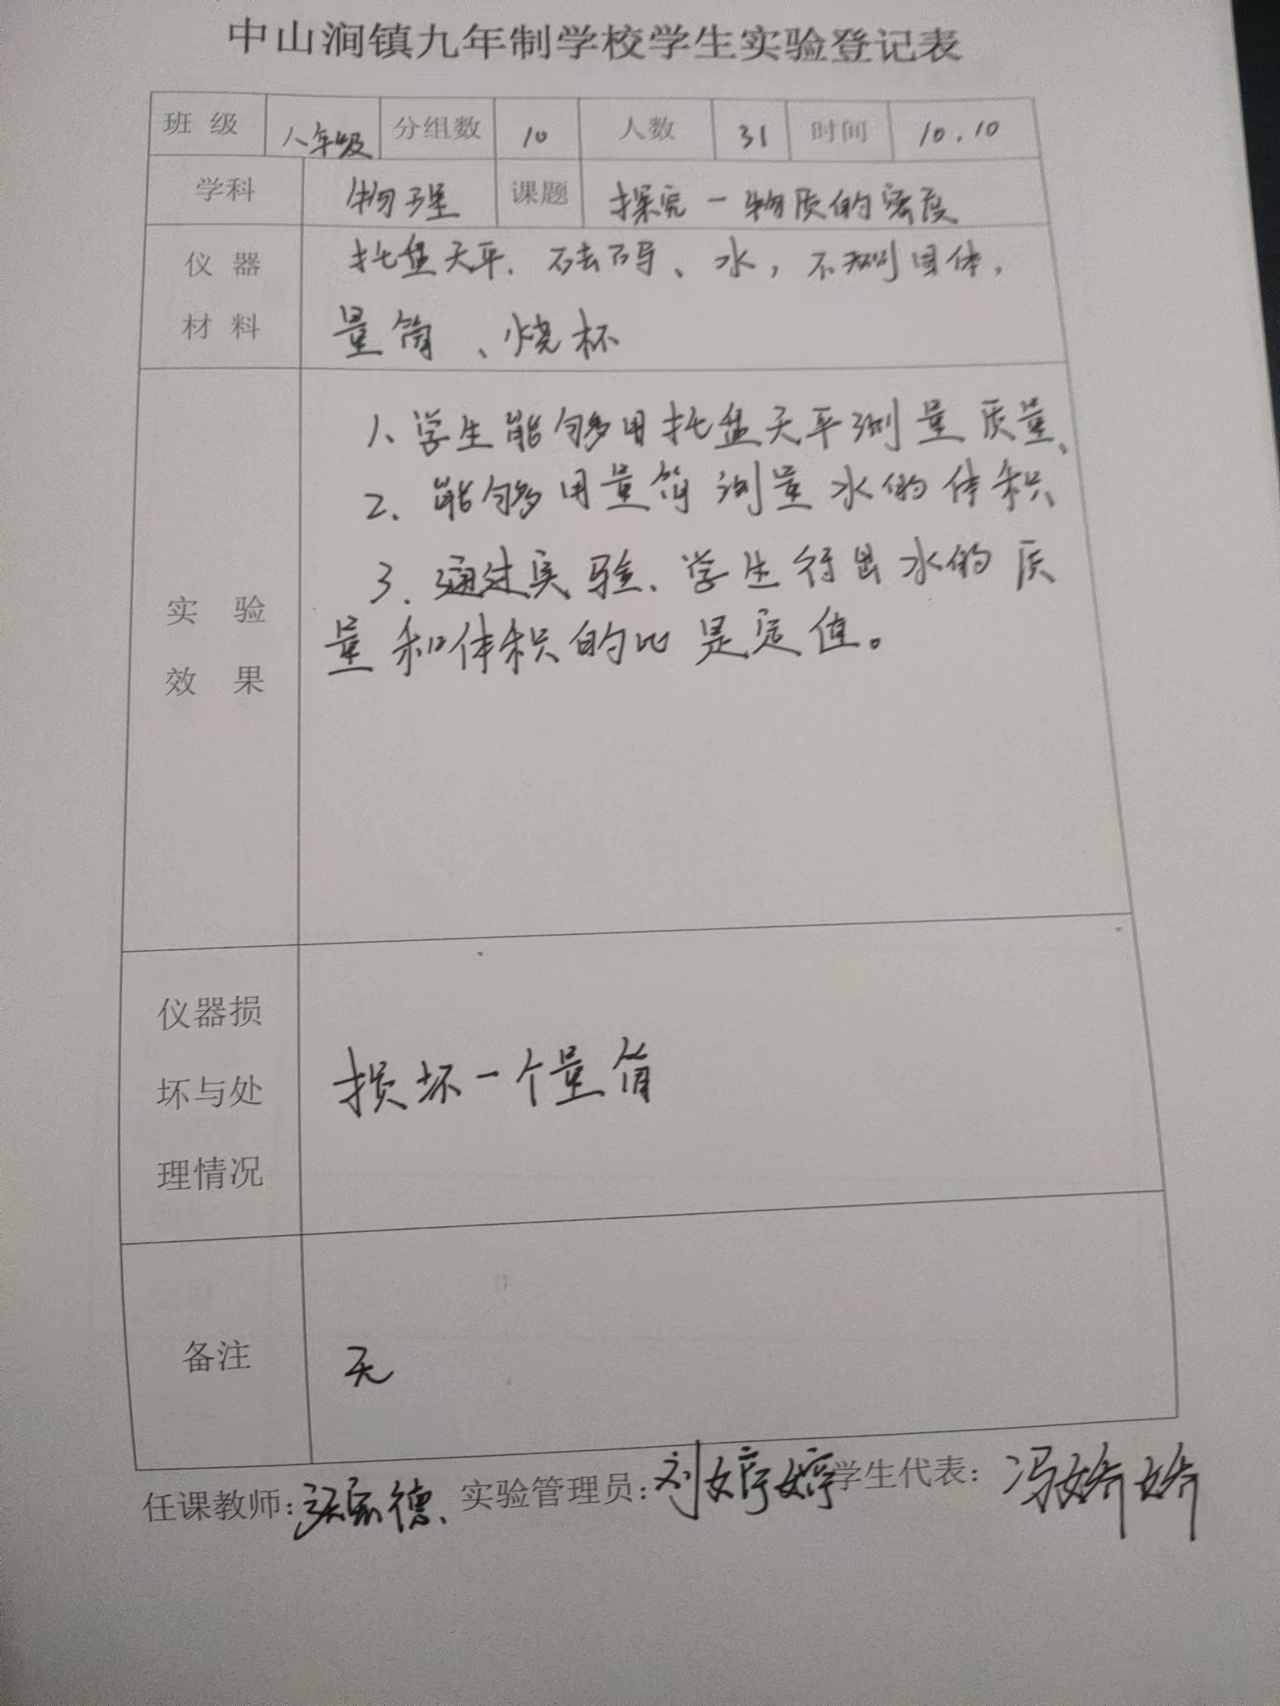 中山涧镇九年制学校学生实验登记表
班 级 八年级 分组数 10 人数 31 时间 10.10
学科 物理 课题 探究一物质的密度
仪 器 托盘天平、砝码、水，不规则固体，
材 料 量筒、烧杯
1、学生能够用托盘天平测量质量、
2、能够用量筒测量水的体积
3、通过实验、学生得出水的质
实 验 量和体积的比是定值。
效 果
仪器损
坏与处 损坏一个量筒
理情况
备注 无
任课教师：张家德、 实验管理员：刘婷婷 学生代表：冯娇娇